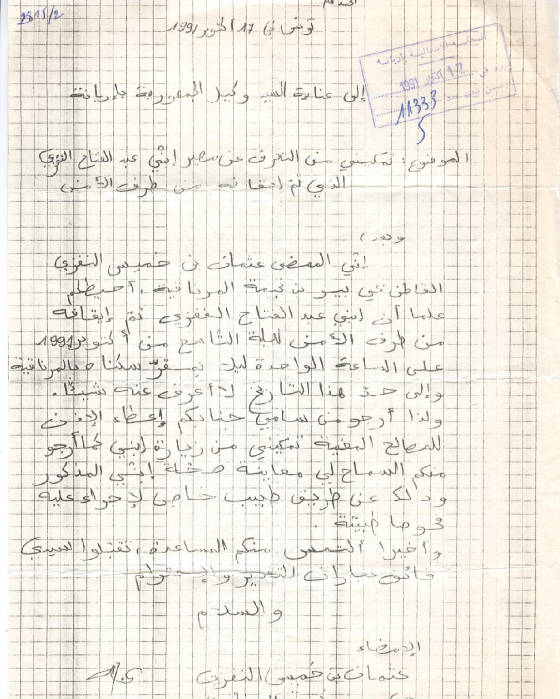 2815/2
الحمد لله
تونس في 17 أكتوبر 1991
المحكمة الابتدائية بأريانة
ورد في 17 أكتوبر 1991
11333
5
إلى عناية السيد وكيل الجمهورية بأريانة
الموضوع: تمكيني من التعرف عن مصير إبني عبد الفتاح النفزي
الذي تم إيقافه من طرف الأمن
وبعد،
إني الممضي عثمان بن خميس النفزي
القاطن بني بيسر بن نجيمة المرناقية، أحيطكم
علما أن إبني عبد الفتاح النفزي تم إيقافه
من طرف الأمن ليلة التاسع من أكتوبر 1991
على الساعة الواحدة ليلا بمقر سكناه بالمرناقية
وإلى حد هذا التاريخ لا أعرف عنه شيئا.
ولذا أرجو من سامي جنابكم إعطاء الإذن
للمصالح المعنية تمكيني من زيارة إبني كما أرجو
منكم السماح لي معاينة صحة إبني المذكور
وذلك عن طريق طبيب خاص لإجراء عليه
فحوصا طبية.
وأخيرا ألتمس منكم المساعدة، تقبلوا سيدي
فائق عبارات التقدير والإحترام
والسلام
الإمضاء
عثمان بن خميس النفزي